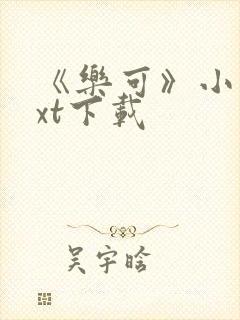 《樂可》小
xt下載
吴宇晗